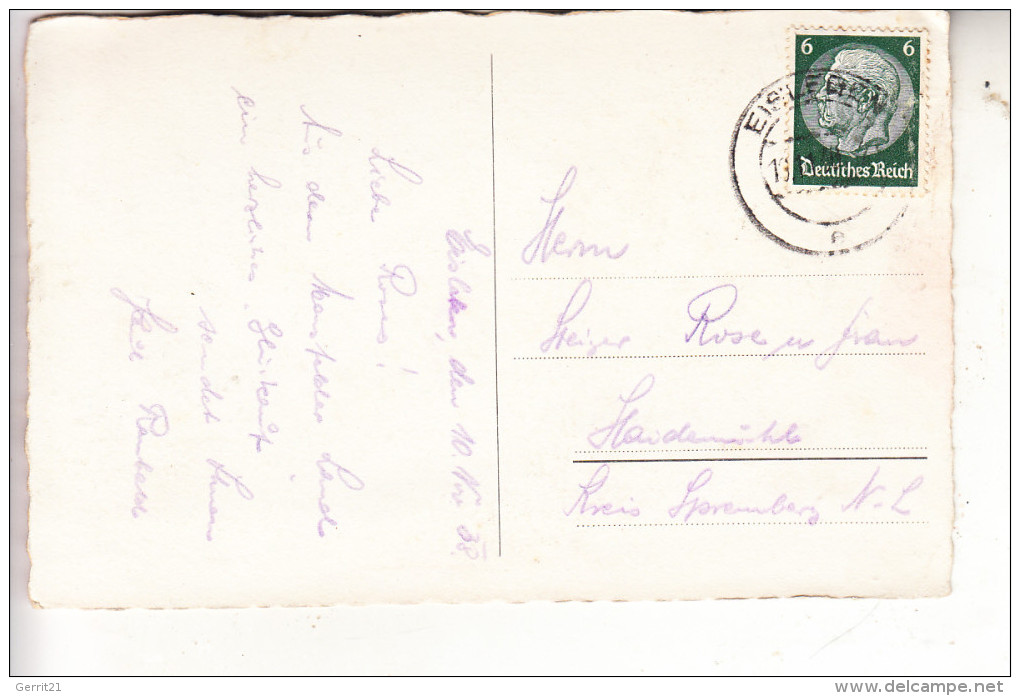 Eisleben, den 10. Nov 38.
Liebe Roses!
Aus dem Mansfelder Land
ein herzliches "Glückauf"
sendet Ihnen
6 6
Deutsches Reich
EISLEBEN
e
Herrn
Steiger Rose u Frau
Haidemühle
Kreis Spremberg N.-L
Gerrit21
http://www.delcampe.net